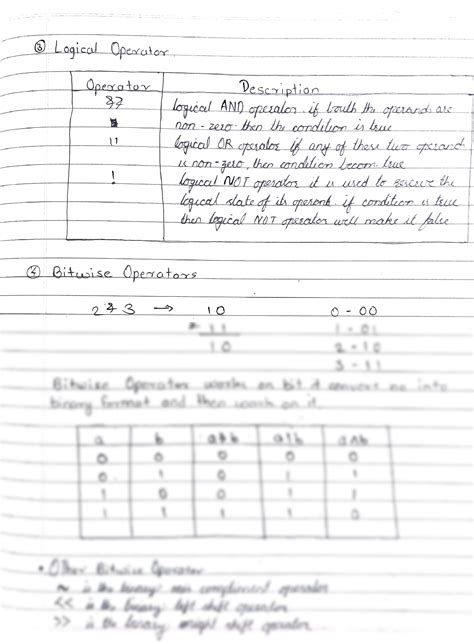 ③ Logical Operator
Operator Description
&& logical AND operator. if bouth the operand are
non-zero then the condition is true
|| logical OR operator if any of these two operand
is non-zero, then condition become true
! logical NOT operator it is used to reverse the
logical state of its operand. if condition is true
then logical NOT operator will make it false
④ Bitwise Operators
2 & 3 → 10 0 - 00
& 11 1 - 01
10 2 - 10
3 - 11
Bitwise Operator works on bit it convert no into
binary format and then work on it.
a b a&b a|b a^b
0 0 0 0 0
0 1 0 1 1
1 0 0 1 1
1 1 1 1 0
• Other Bitwise Operator
~ is the binary compliment operator
<< is the binary left shift operator
>> is the binary right shift operator